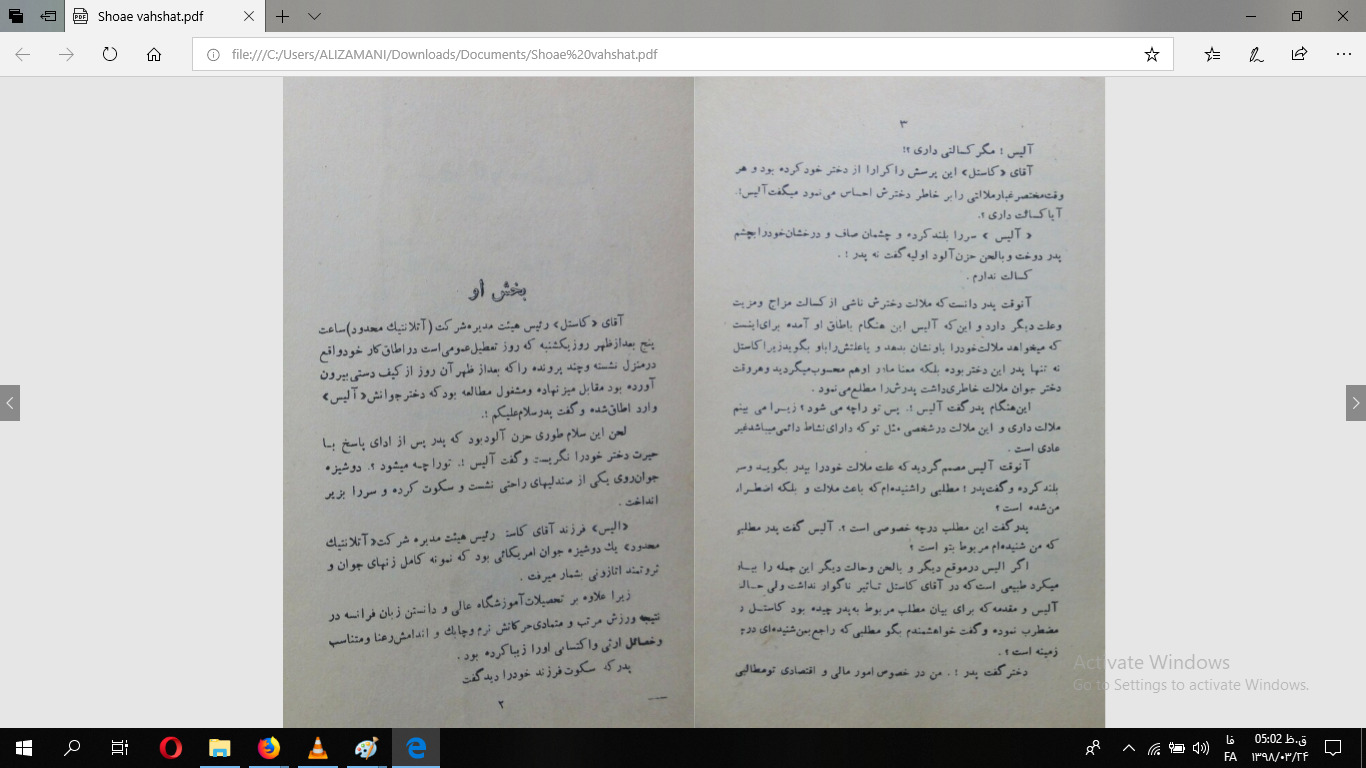 Shoae vahshat.pdf
file:///C:/Users/ALIZAMANI/Downloads/Documents/Shoae%20vahshat.pdf
بخش او
آقای «کاستل» رئیس هیئت مدیره شرکت (آتلانتیك محدود) ساعت
پنج بعدازظهر روز یکشنبه که روز تعطیل عمومی است در اطاق کار خود واقع
در منزل نشسته و چند پرونده را که بعداز ظهر آن روز از کیف دستی بیرون
آورده بود مقابل میز نهاده و مشغول مطالعه بود که دختر جوانش «آلیس»
وارد اطاق شده و گفت پدر سلام علیکم !.
لحن این سلام طوری حزن آلود بود که پدر پس از ادای پاسخ بـا
حیرت دختر خودرا نگریست و گفت آلیس !. تورا چـه میشود ؟. دوشیزه
جوان روی یکی از صندلیهای راحتی نشست و سکوت کرده و سررا بزیر
انداخت .
«الیس» فرزند آقای کاستل رئیس هیئت مدیره شرکت «آتلانتیك
محدود» یك دوشیزه جوان امریکائی بود که نمونه کامل زنهای جوان و
ثروتمند اتازونی بشمار میرفت .
زیرا علاوه بر تحصیلات آموزشگاه عالی و دانستن زبان فرانسه در
نتیجه ورزش مرتب و متمادی حرکاتش نرم و چابك و اندامش رعنا و متناسب
و خصائل ارثی و اکتسابی اورا زیبا کرده بود .
پدر که سکوت فرزند خودرا دید گفت
۲
۳
آلیس ! مگر کسالتی داری ؟!
آقای «کاستل» این پرسش را کرارا از دختر خود کرده بود و هر
وقت مختصر غبار ملالتی را بر خاطر دخترش احساس می نمود میگفت آلیس!.
آیا کسالت داری ؟.
« آلیس » سررا بلند کرده و چشمان صاف و درخشان خودرا بچشم
پدر دوخت و بالحن حزن آلود اولیه گفت نه پدر ! .
کسالت ندارم .
آنوقت پدر دانست که ملالت دخترش ناشی از کسالت مزاج و مزیت
وعلت دیگر دارد و این که آلیس این هنگام باطاق او آمده برای اینست
که میخواهد ملالت خودرا باو نشان بدهد و یا علتش را باو بگوید زیرا کاستل
نه تنها پدر این دختر بوده بلکه معنا مادر اوهم محسوب میگردید و هروقت
دختر جوان ملالت خاطری داشت پدرش را مطلع می نمود .
این هنگام پدر گفت آلیس !. پس تو راچه می شود ؟ زیـرا می بینم
ملالت داری و این ملالت در شخصی مثل تو که دارای نشاط دائمی میباشد غیر
عادی است .
آنوقت آلیس مصمم گردید که علت ملالت خودرا بپدر بگویـد وسر
بلند کرده و گفت پدر ! مطلبی را شنیده ام که باعث ملالت و بلکه اضطراب
من شده است ؟
پدر گفت این مطلب درچه خصوصی است ؟. آلیس گفت پدر مطلبی
که من شنیده ام مربوط بتو است ؟
اگر الیس در موقع دیگر و بالحن وحالت دیگر این جمله را بیان
میکرد طبیعی است که در آقای کاستل تـاثیر ناگوار نداشت ولی حـالت
آلیس و مقدمه که برای بیان مطلب مربوط به پدر چیده بود کاستـل را
مضطرب نموده و گفت خواهشمندم بگو مطلبی که راجع بمن شنیده ای درچه
زمینه است ؟ .
دختر گفت پدر ! . من در خصوص امور مالی و اقتصادی تو مطالبی
Activate Windows
Go to Settings to activate Windows.
05:02 ق.ظ
۱۳۹۸/۰۳/۲۴
فا
FA